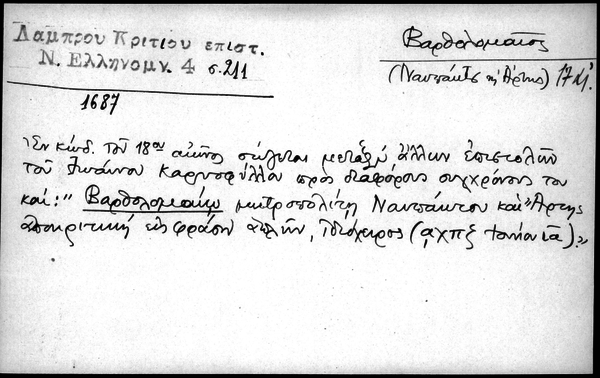 Λαμπρου Κριτιου επιστ.
Ν. Ελληνομν. 4 σ. 211
1687
Βαρθολομαῖος
(Ναυπάκτς κ Ἄρτης) 17 αἰ.
"Ἐν κώδ. τοῦ 18ου αἰῶνος σώζεται μεταξὺ ἄλλων ἐπιστολῶν
τοῦ Ἰωάννου Καρυοφύλλου πρὸς διαφόρους συγχρόνους του
καί: " Βαρθολομαίῳ μητροπολίτῃ Ναυπάκτου καὶ Ἄρτης
ἀποκριτικὴ εἰς φράσιν ἁπλῆν, ἰδιόχειρος (αχπζ ιαῖ)."